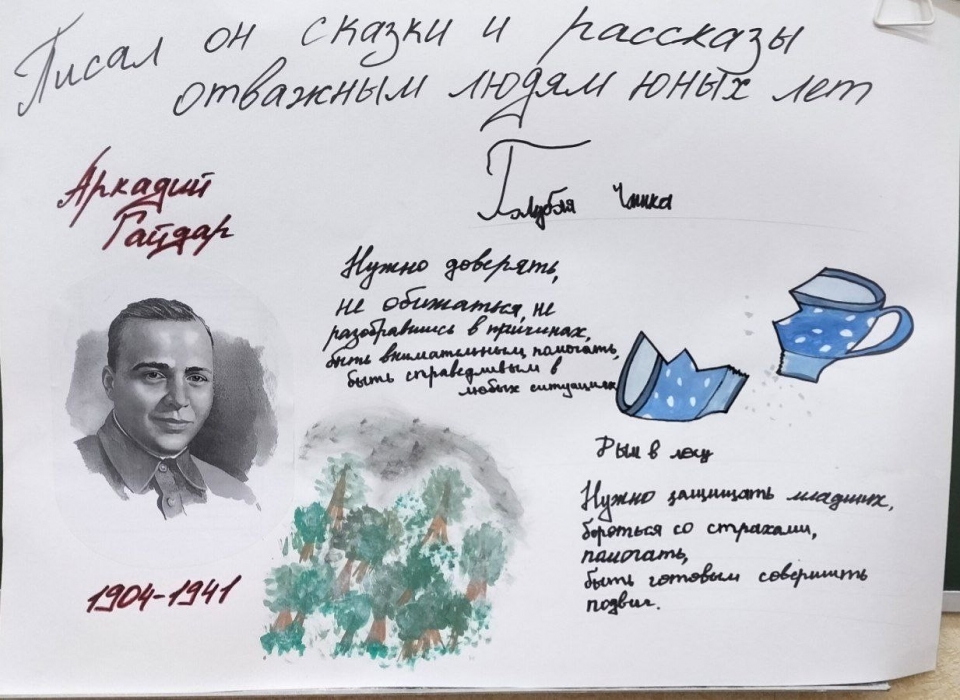 Писал он сказки и рассказы
отважным людям юных лет
Аркадий
Гайдар
Голубая Чашка
Нужно доверять,
не обижаться, не
разобравшись в причинах,
быть внимательным, помогать,
быть справедливым в
любых ситуациях
1904-1941
Дым в лесу
Нужно защищать младших,
бороться со страхами,
помогать,
быть готовым совершить
подвиг.